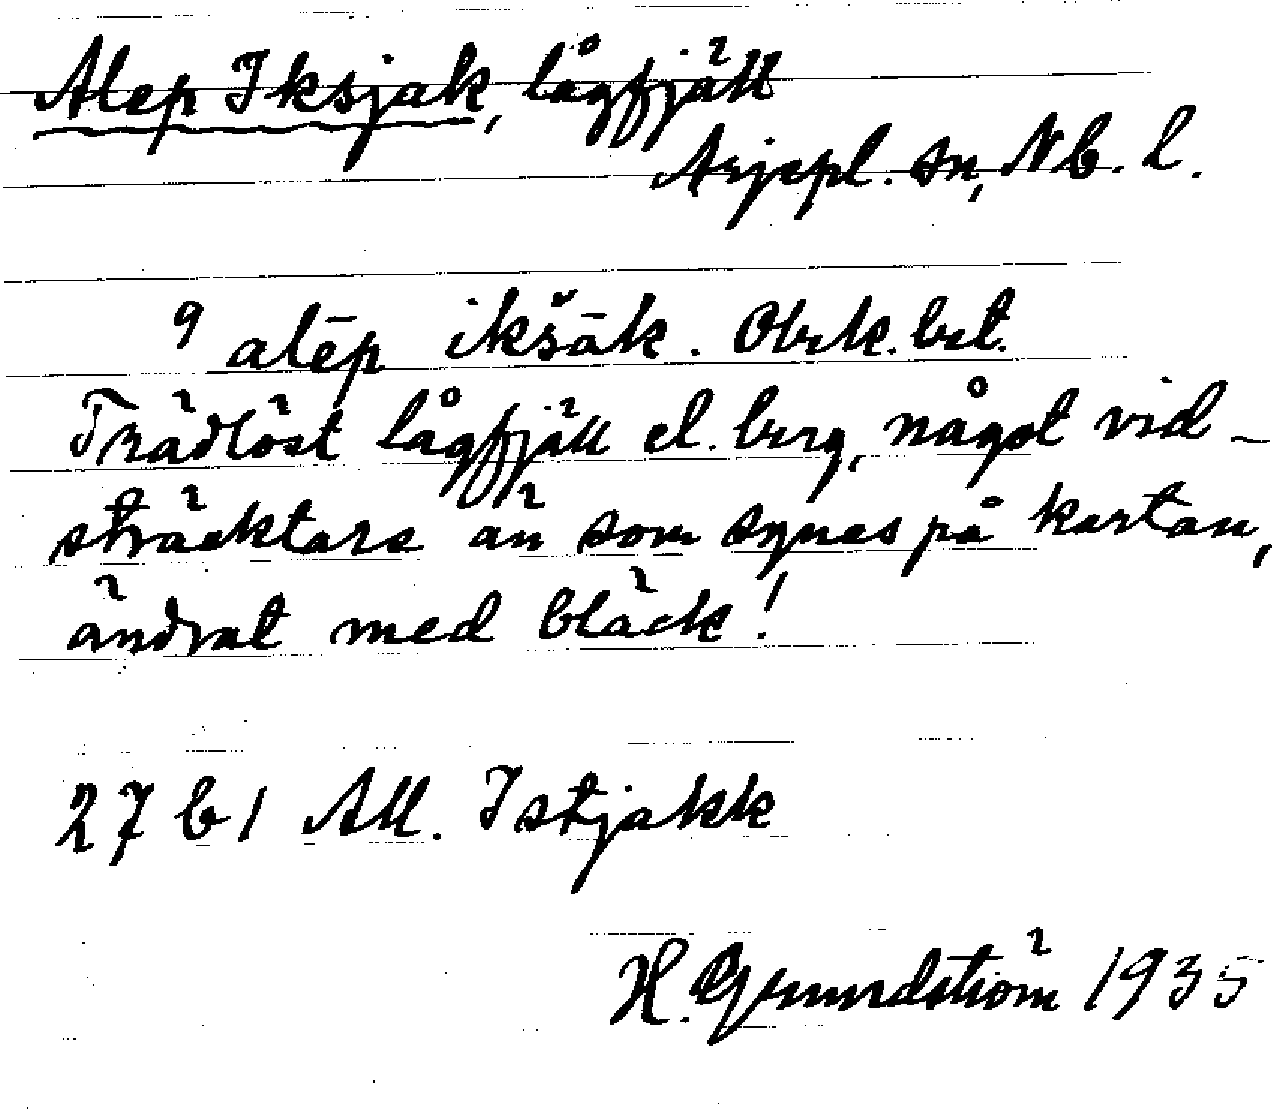 Alep Iksjak, lågfjäll
Arjepl. sn, Nb. l.
9 alēp ikšāk. Obek. bet.
Trädlöst lågfjäll el. berg, något vid-
sträcktare än som synes på kartan,
ändrat med bläck!
27 b 1 All. Istjakk
H. Grundström 1935